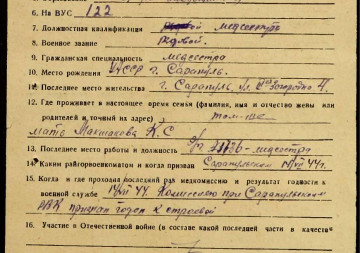 6. На ВУС 122
7. Должностная квалификация рядовой медсестра
8. Военное звание рядовой.
9. Гражданская специальность медсестра
10. Место рождения УАССР г. Сарапуль.
11. Последнее место жительства г. Сарапуль, ул.
12. Где проживает в настоящее время семья (фамилия, имя и отчество жены или
родителей и точный их адрес) там-же
мать К. С.
13. Последнее место работы и должность медсестра
14. Каким райгорвоенкоматом и когда призван Сарапульским 44 г.
15. Когда и где проходил последний раз медкомиссию и результат годности к
военной службе 44. Комиссию при Сарапульском
РВК признан годен к строевой
16. Участие в Отечественной войне (в составе какой последней части в качестве